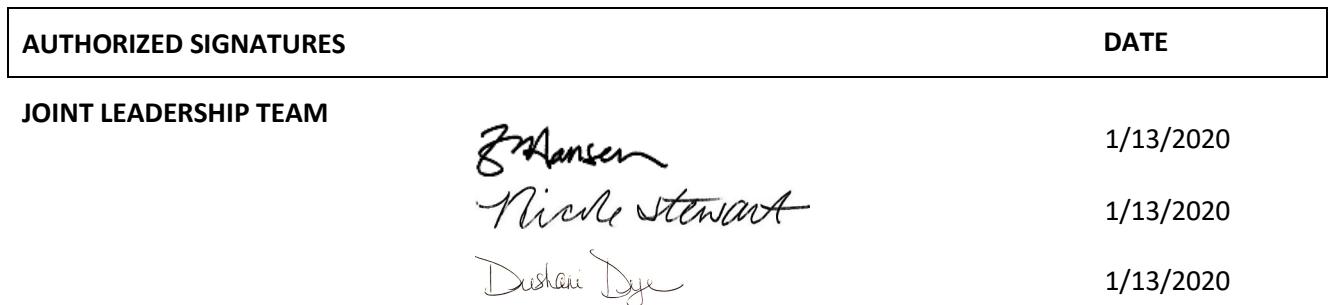 AUTHORIZED SIGNATURES DATE
JOINT LEADERSHIP TEAM
Hansen 1/13/2020
Nicole Stewart 1/13/2020
Dushani Dye 1/13/2020